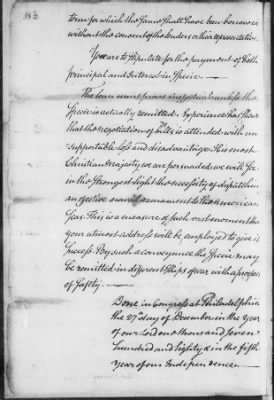 382
term for which the same shall have been borrowed
without the consent of the lenders or their representatives.
You are to stipulate for the payment of both
principal and Interest in specie.
The loan answers no important unless the
specie is actually remitted. Experience has shewn
that the negotiation of bills is attended with un
supportable loss and disadvantage. His most
Christian Majesty we are persuaded we will see
in the strongest light the necessity of dispatching
an effective naval armament to the American
Seas. This is a measure of such vast moment that
your utmost address will be employed to give it
success. By such a conveyance the specie may
be remitted in different Ships of war with a prospect
of safety.
Done in Congress at Philadelphia
the 27th day of December in the Year
of our Lord one thousand seven
hundred and Eighty & in the fifth
Year of our Independence